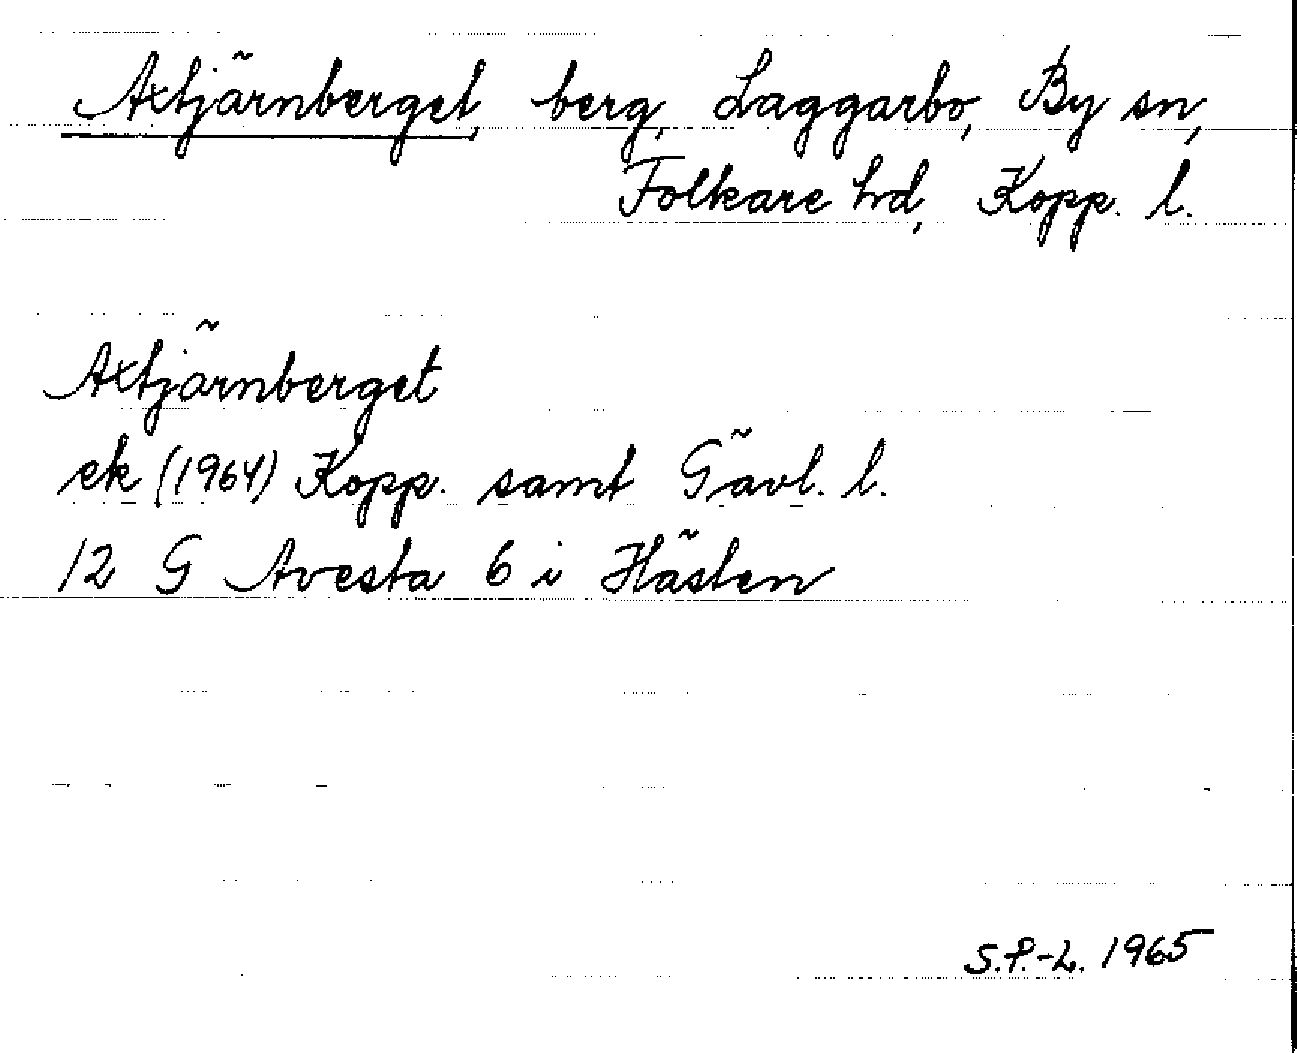 Axtjärnberget, berg, Laggarbo, By sn,
Folkare hd, Kopp. l.
Axtjärnberget
ek (1964) Kopp. samt Gävl. l.
12 G Avesta 6 i Hästen
S.P.-L. 1965